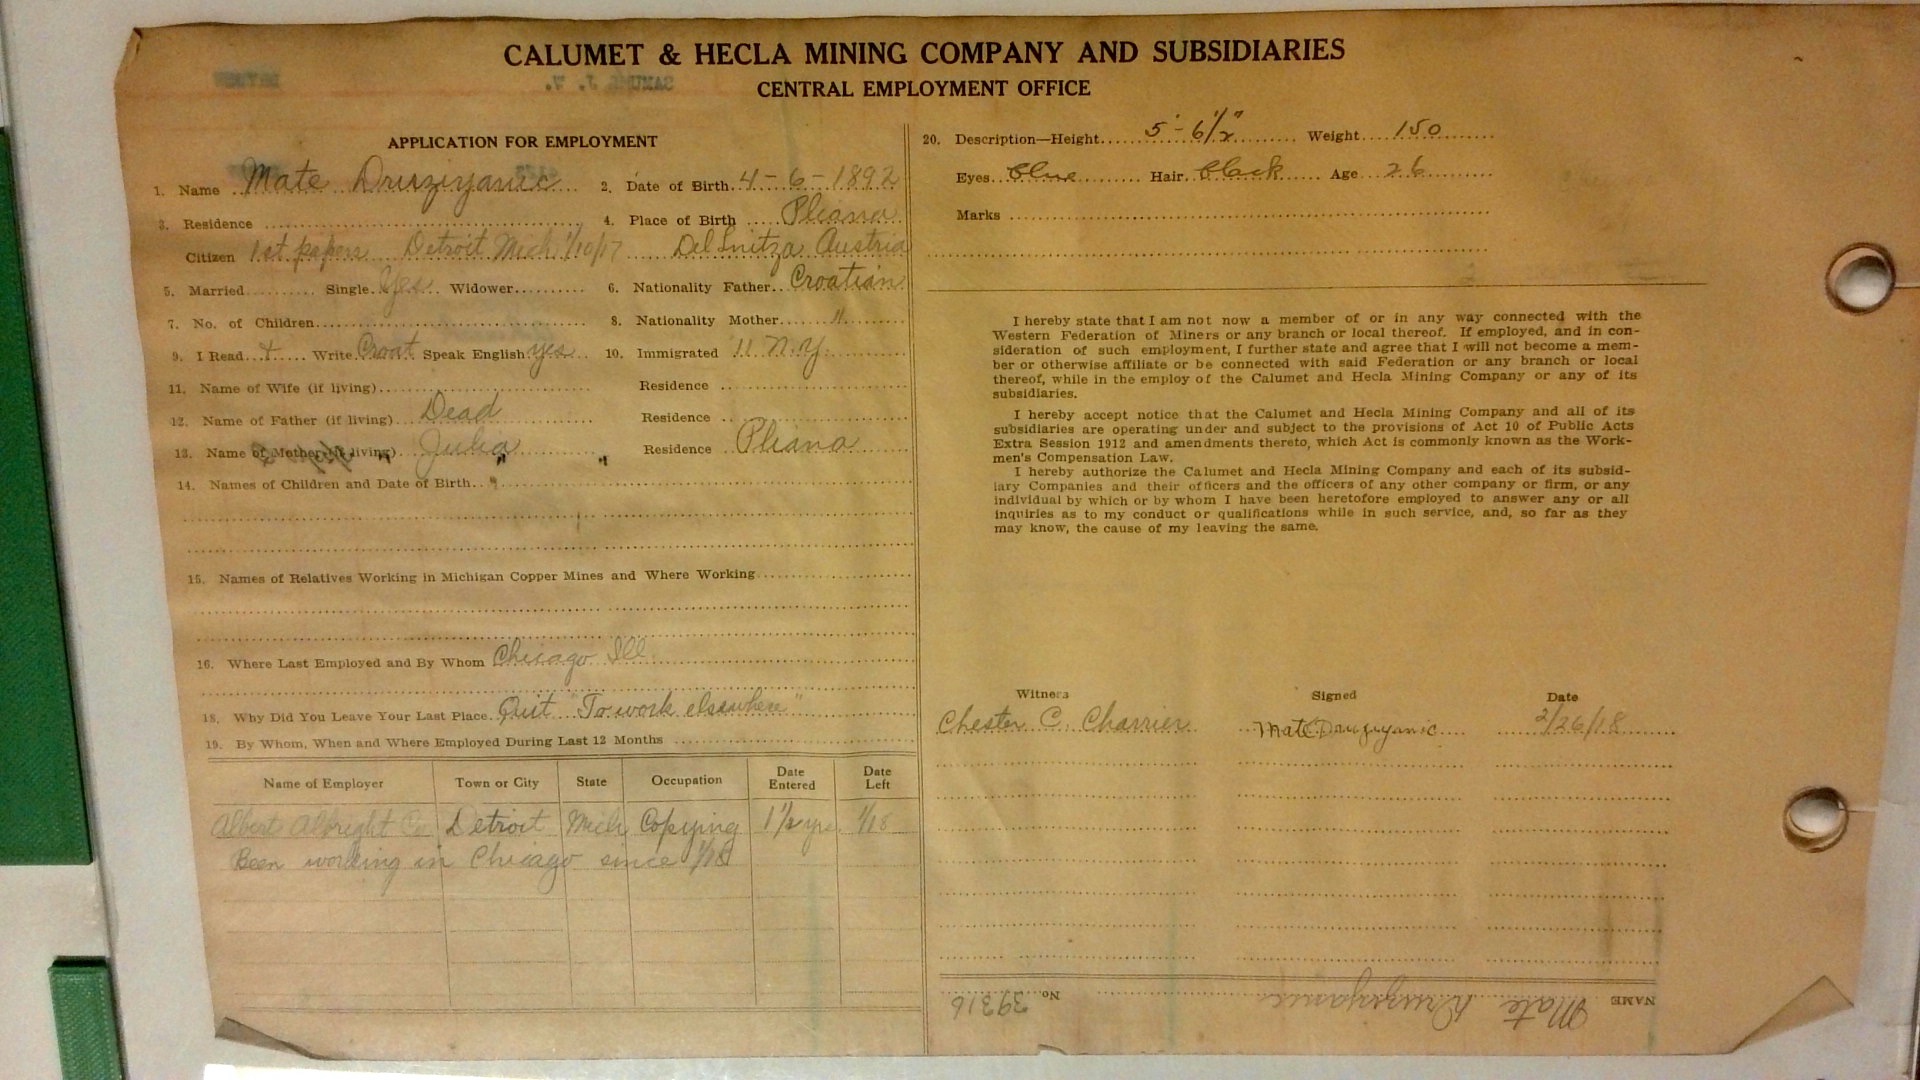 CALUMET & HECLA MINING COMPANY AND SUBSIDIARIES
CENTRAL EMPLOYMENT OFFICE
APPLICATION FOR EMPLOYMENT
1. Name Mate Druzyanic 2. Date of Birth 4-6-1892
3. Residence 4. Place of Birth Pliana
Citizen 1st papers Detroit Mich 1/10/17 Delnitza Austria
5. Married Single Yes Widower 6. Nationality Father Croatian
7. No. of Children 8. Nationality Mother "
9. I Read + Write Croat Speak English yes 10. Immigrated 11 N.Y.
11. Name of Wife (if living) Residence
12. Name of Father (if living) Dead Residence
13. Name of Mother (if living) Julia Residence Pliana
14. Names of Children and Date of Birth
15. Names of Relatives Working in Michigan Copper Mines and Where Working
16. Where Last Employed and By Whom Chicago Ill
18. Why Did You Leave Your Last Place. Quit "To work elsewhere"
19. By Whom, When and Where Employed During Last 12 Months
Name of Employer Town or City State Occupation Date Entered Date Left
Albert Albright Co Detroit Mich Copying 1 1/2 yrs 1/18
Been working in Chicago since 1/18
20. Description—Height 5'-6 1/2" Weight 150
Eyes blue Hair black Age 26
Marks
I hereby state that I am not now a member of or in any way connected with the
Western Federation of Miners or any branch or local thereof. If employed, and in con-
sideration of such employment, I further state and agree that I will not become a mem-
ber or otherwise affiliate or be connected with said Federation or any branch or local
thereof, while in the employ of the Calumet and Hecla Mining Company or any of its
subsidiaries.
I hereby accept notice that the Calumet and Hecla Mining Company and all of its
subsidiaries are operating under and subject to the provisions of Act 10 of Public Acts
Extra Session 1912 and amendments thereto, which Act is commonly known as the Work-
men's Compensation Law.
I hereby authorize the Calumet and Hecla Mining Company and each of its subsid-
iary Companies and their officers and the officers of any other company or firm, or any
individual by which or by whom I have been heretofore employed to answer any or all
inquiries as to my conduct or qualifications while in such service, and, so far as they
may know, the cause of my leaving the same.
Witness Signed Date
Chester C. Charrier Mate Druzyanic 2/26/18
NAME Mate Druzyanic No. 39316